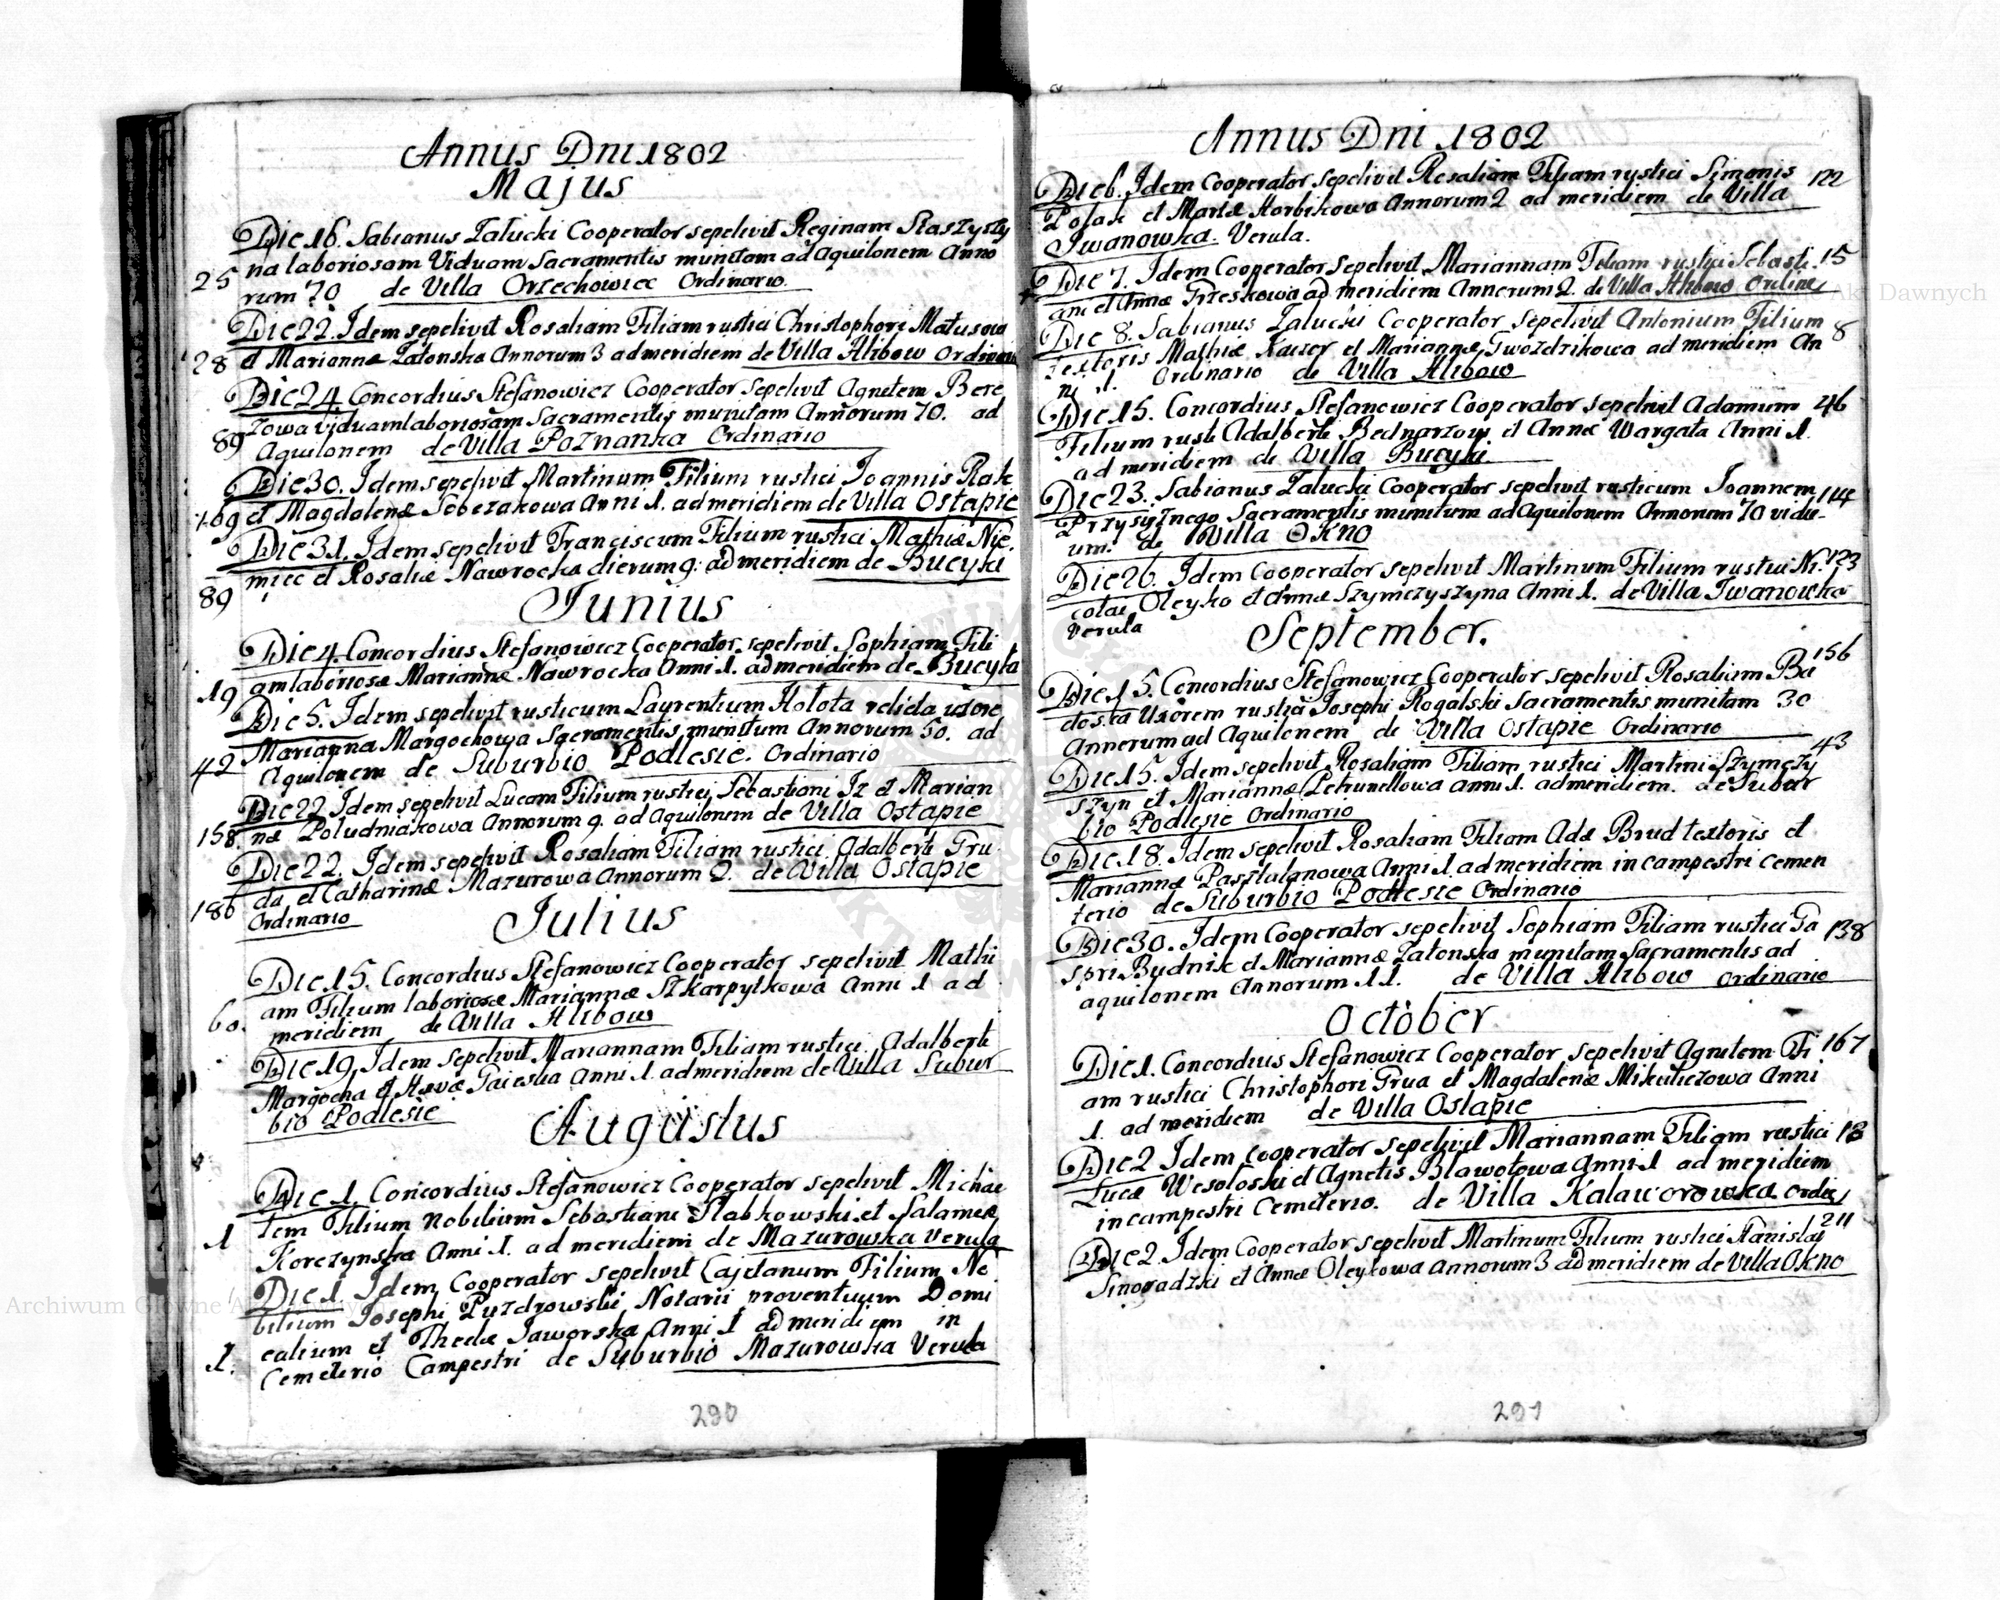 Annus Dni 1802
Majus
Die 16. Fabianus Załucki Cooperator sepelivit Reginam Staszyszy
25 na laboriosam Viduam Sacramentis munitam ad Aquilonem Anno
rum 70 de Villa Orzechowiec Ordinario.
Die 22. Idem sepelivit Rosaliam Filiam rustici Christophori Matusowa
28 et Mariannæ Zatonska Annorum 3 ad meridiem de Villa Hlibow Ordinario
Die 24 Concordius Stefanowicz Cooperator sepelivit Agnetem Bere
zowa viduam laboriosam Sacramentis munitam Annorum 70. ad
89 Aquilonem de Villa Poznanka Ordinario
Die 30. Idem sepelivit Martinum Filium rustici Joannis Rak
169 et Magdalenæ Soberakowa Anni 1. ad meridiem de Villa Ostapie
Die 31. Idem sepelivit Franciscum Filium rustici Mathiæ Nie,
miec et Rosaliæ Nawrocka dierum 9. ad meridiem de Bucyki
89
Junius
Die 4 Concordius Stefanowicz Cooperator sepelivit Sophiam Fili
19 am laboriosæ Mariannæ Nawrocka Anni 1. ad meridiem de Bucyka
Die 5. Idem sepelivit rusticum Laurentium Hołota relicta uxore
Marianna Margochowa Sacramentis munitum Annorum 50. ad
42 Aquilonem de Suburbio Podlesie. Ordinario
Die 22 Idem sepelivit Lucam Filium rustici Sebastiani Iz et Marian
158. næ Poludniakowa Annorum 9. ad Aquilonem de Villa Ostapie
Die 22. Idem sepelivit Rosaliam Filiam rustici Adalberti Gru
186 da et Catharinæ Mazurowa Annorum 2. de Villa Ostapie
Ordinario
Julius
Die 15. Concordius Stefanowicz Cooperator sepelivit Mathi
60. am Filium laboriosæ Mariannæ Szkarpytkowa Anni 1 ad
meridiem de Villa Hlibow
Die 19 Idem sepelivit Mariannam Filiam rustici Adalberti
Margocha et Hevæ Gaieska Anni 1. ad meridiem de Villa Subur
bio Podlesie
Augustus
Die 1. Concordius Stefanowicz Cooperator sepelivit Michae
1 lem Filium Nobilium Sebastiani Slabkowski et Salomeæ
Korczynska Anni 1. ad meridiem de Mazurowka Verula
Die 1. Idem Cooperator sepelivit Cajetanum Filium No
bilium Josephi Puzdrowski Notarii proventuum Domi
calium et Theclæ Jaworska Anni 1 ad meridiem in
1. Cemeterio Campestri de Suburbio Mazurowka Verula
290
Annus Dni 1802
Die 6. Idem Cooperator sepelivit Rosaliam Filiam rustici Simonis 122
Polak et Mariæ Horbikowa Annorum 2 ad meridiem de Villa
Iwanowka. Verula.
Die 7. Idem Cooperator sepelivit Mariannam Filiam rustici Sebasti. 15
ani et Annæ Grzeskowa ad meridiem Annorum 2. de Villa Hlibow Ordine
Die 8. Fabianus Załucki Cooperator sepelivit Antonium Filium 8
Textoris Mathiæ Kaizer et Mariannæ Gwozdzikowa ad meridiem An
ni 1. Ordinario de Villa Hlibow
Die 15. Concordius Stefanowicz Cooperator sepelivit Adamum 46
Filium rusti Adalberti Bednarzow et Annæ Wargata Anni 1.
ad meridiem de Villa Bucyki.
Die 23. Fabianus Załucki Cooperator sepelivit rusticum Joannem 114
Przysiężnego Sacramentis munitum ad Aquilonem Annorum 70 vidu-
um. de Villa Okno
Die 26. Idem Cooperator sepelivit Martinum Filium rustici Ni. 123
colai Oleyko et Annæ Szymczyszyna Anni 1. de Villa Iwanowka
Verula
September.
Die 15. Concordius Stefanowicz Cooperator sepelivit Rosaliam Ba 156
doska Uxorem rustici Josephi Rogalski Sacramentis munitam 30
Annorum ad Aquilonem de Villa Ostapie Ordinario
Die 15. Idem sepelivit Rosaliam Filiam rustici Martini Szymczy 43
szyn et Mariannæ Petrunellowa Anni 1. ad meridiem. de Subur
bio Podlesie Ordinario
Die 18. Idem sepelivit Rosaliam Filiam Adæ Brud textoris et
Mariannæ Paszlalanowa Anni 1. ad meridiem in campestri cemen
terio de Suburbio Podlesie Ordinario
Die 30. Idem Cooperator sepelivit Sophiam Filiam rustici Ga 138
spri Budnik et Mariannæ Zatonska munitam Sacramentis ad
aquilonem Annorum 11. de Villa Hlibow Ordinario
October
Die 1. Concordius Stefanowicz Cooperator sepelivit Agnetem Fi 167
am rustici Christophori Grua et Magdalenæ Mikuliczowa Anni
1. ad meridiem de Villa Ostapie
Die 2 Idem Cooperator sepelivit Mariannam Filiam rustici 18
Lucæ Wesoloski et Agnetis Blawotowa Anni 1 ad meridiem
in campestri Cemeterio. de Villa Kalaworowka Ordi
Die 2 Idem Cooperator sepelivit Martinum Filium rustici Stanislai 211
Sinoradzki et Annæ Oleykowa Annorum 3 ad meridiem de Villa Okno
291
Archiwum Główne Akt Dawnych